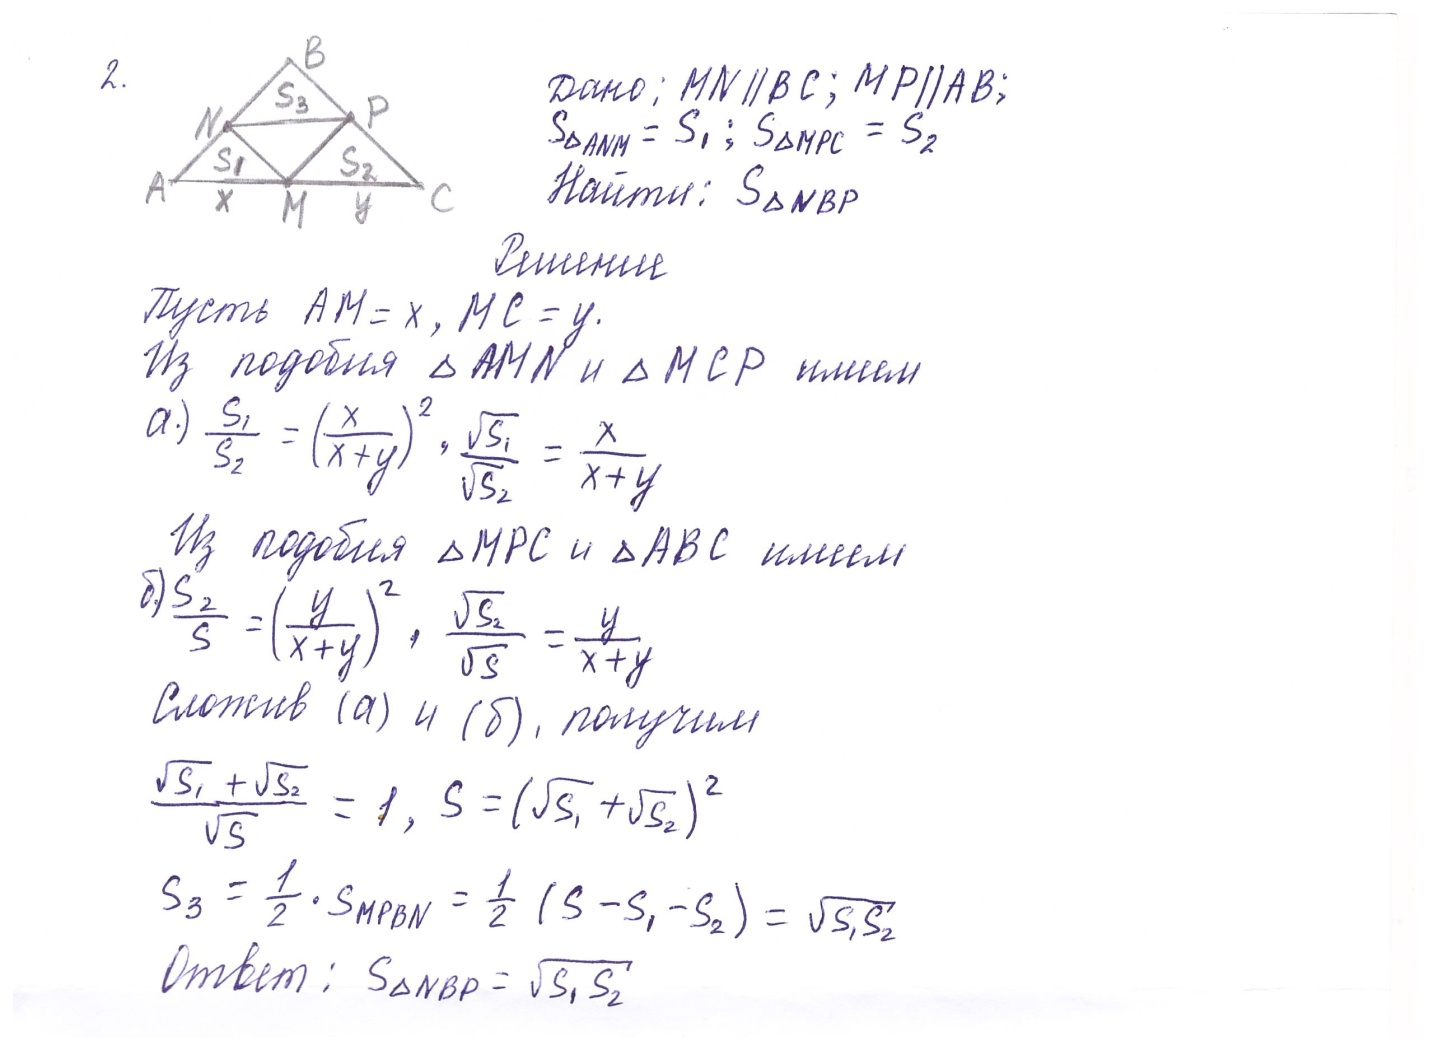 2.
B
S₃
N
P
S₁
S₂
A
x
M
y
C
Дано: MN||BC; MP||AB;
S△ANM = S₁; S△MPC = S₂
Найти: S△NBP
Решение
Пусть AM = x, MC = y.
Из подобия △AMN и △MCP имеем
а.) S₁/S₂ = (x/(x+y))², √S₁/√S₂ = x/(x+y)
Из подобия △MPC и △ABC имеем
б) S₂/S = (y/(x+y))², √S₂/√S = y/(x+y)
Сложив (а) и (б), получим
(√S₁ + √S₂)/√S = 1, S = (√S₁ + √S₂)²
S₃ = 1/2 · S MPBN = 1/2 (S - S₁ - S₂) = √S₁S₂
Ответ: S△NBP = √S₁S₂